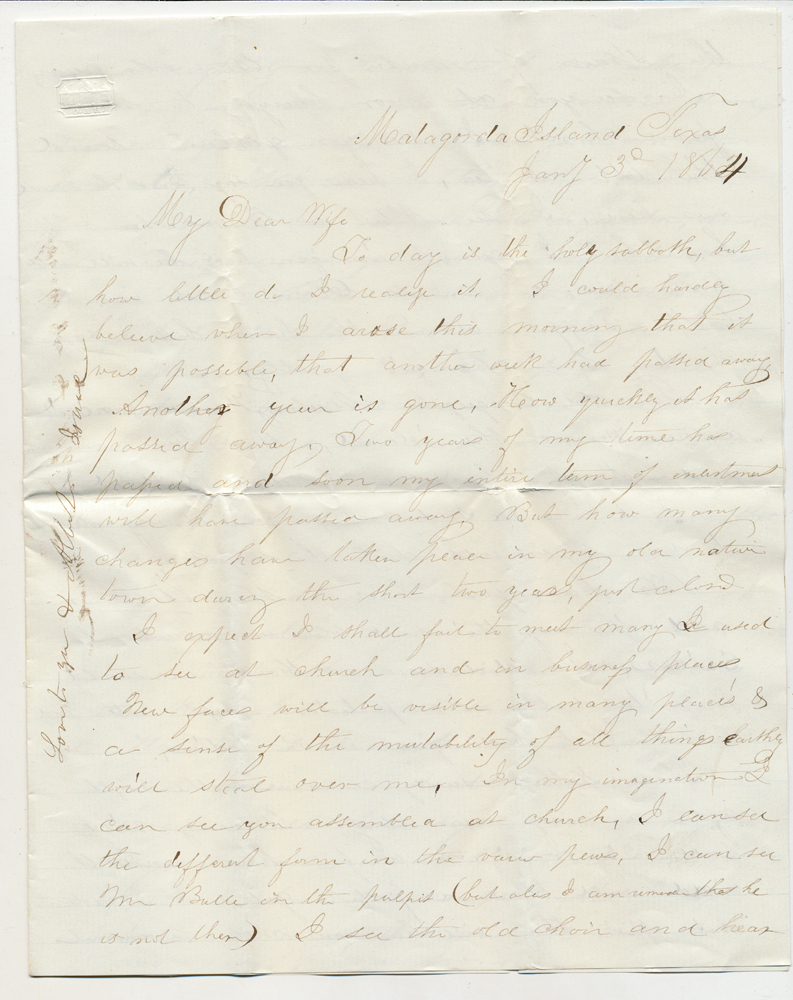 Matagorda Island Texas
Jany 3d 1864
My Dear Wife
To day is the holy sabboth, but
how little do I realise it. I could hardly
believe when I arose this morning that it
was possible, that another week had passed away
Another year is gone, How quickly it has
passed away, Two years of my time has
passed and soon my intire term of inlistment
will have passed away. But how many
changes have taken place in my old native
town during the short two years, just closed
I expect I shall fail to meet many I used
to see at church and in business places
New faces will be visible in many places &
a sense of the mutability of all things earthly
will steal over me. In my imagination I
can see you assembled at church, I can see
the different form in the pews, I can see
Mr in the pulpit (but alas I am he
is not there) I see the old choir and hear
Love to you &